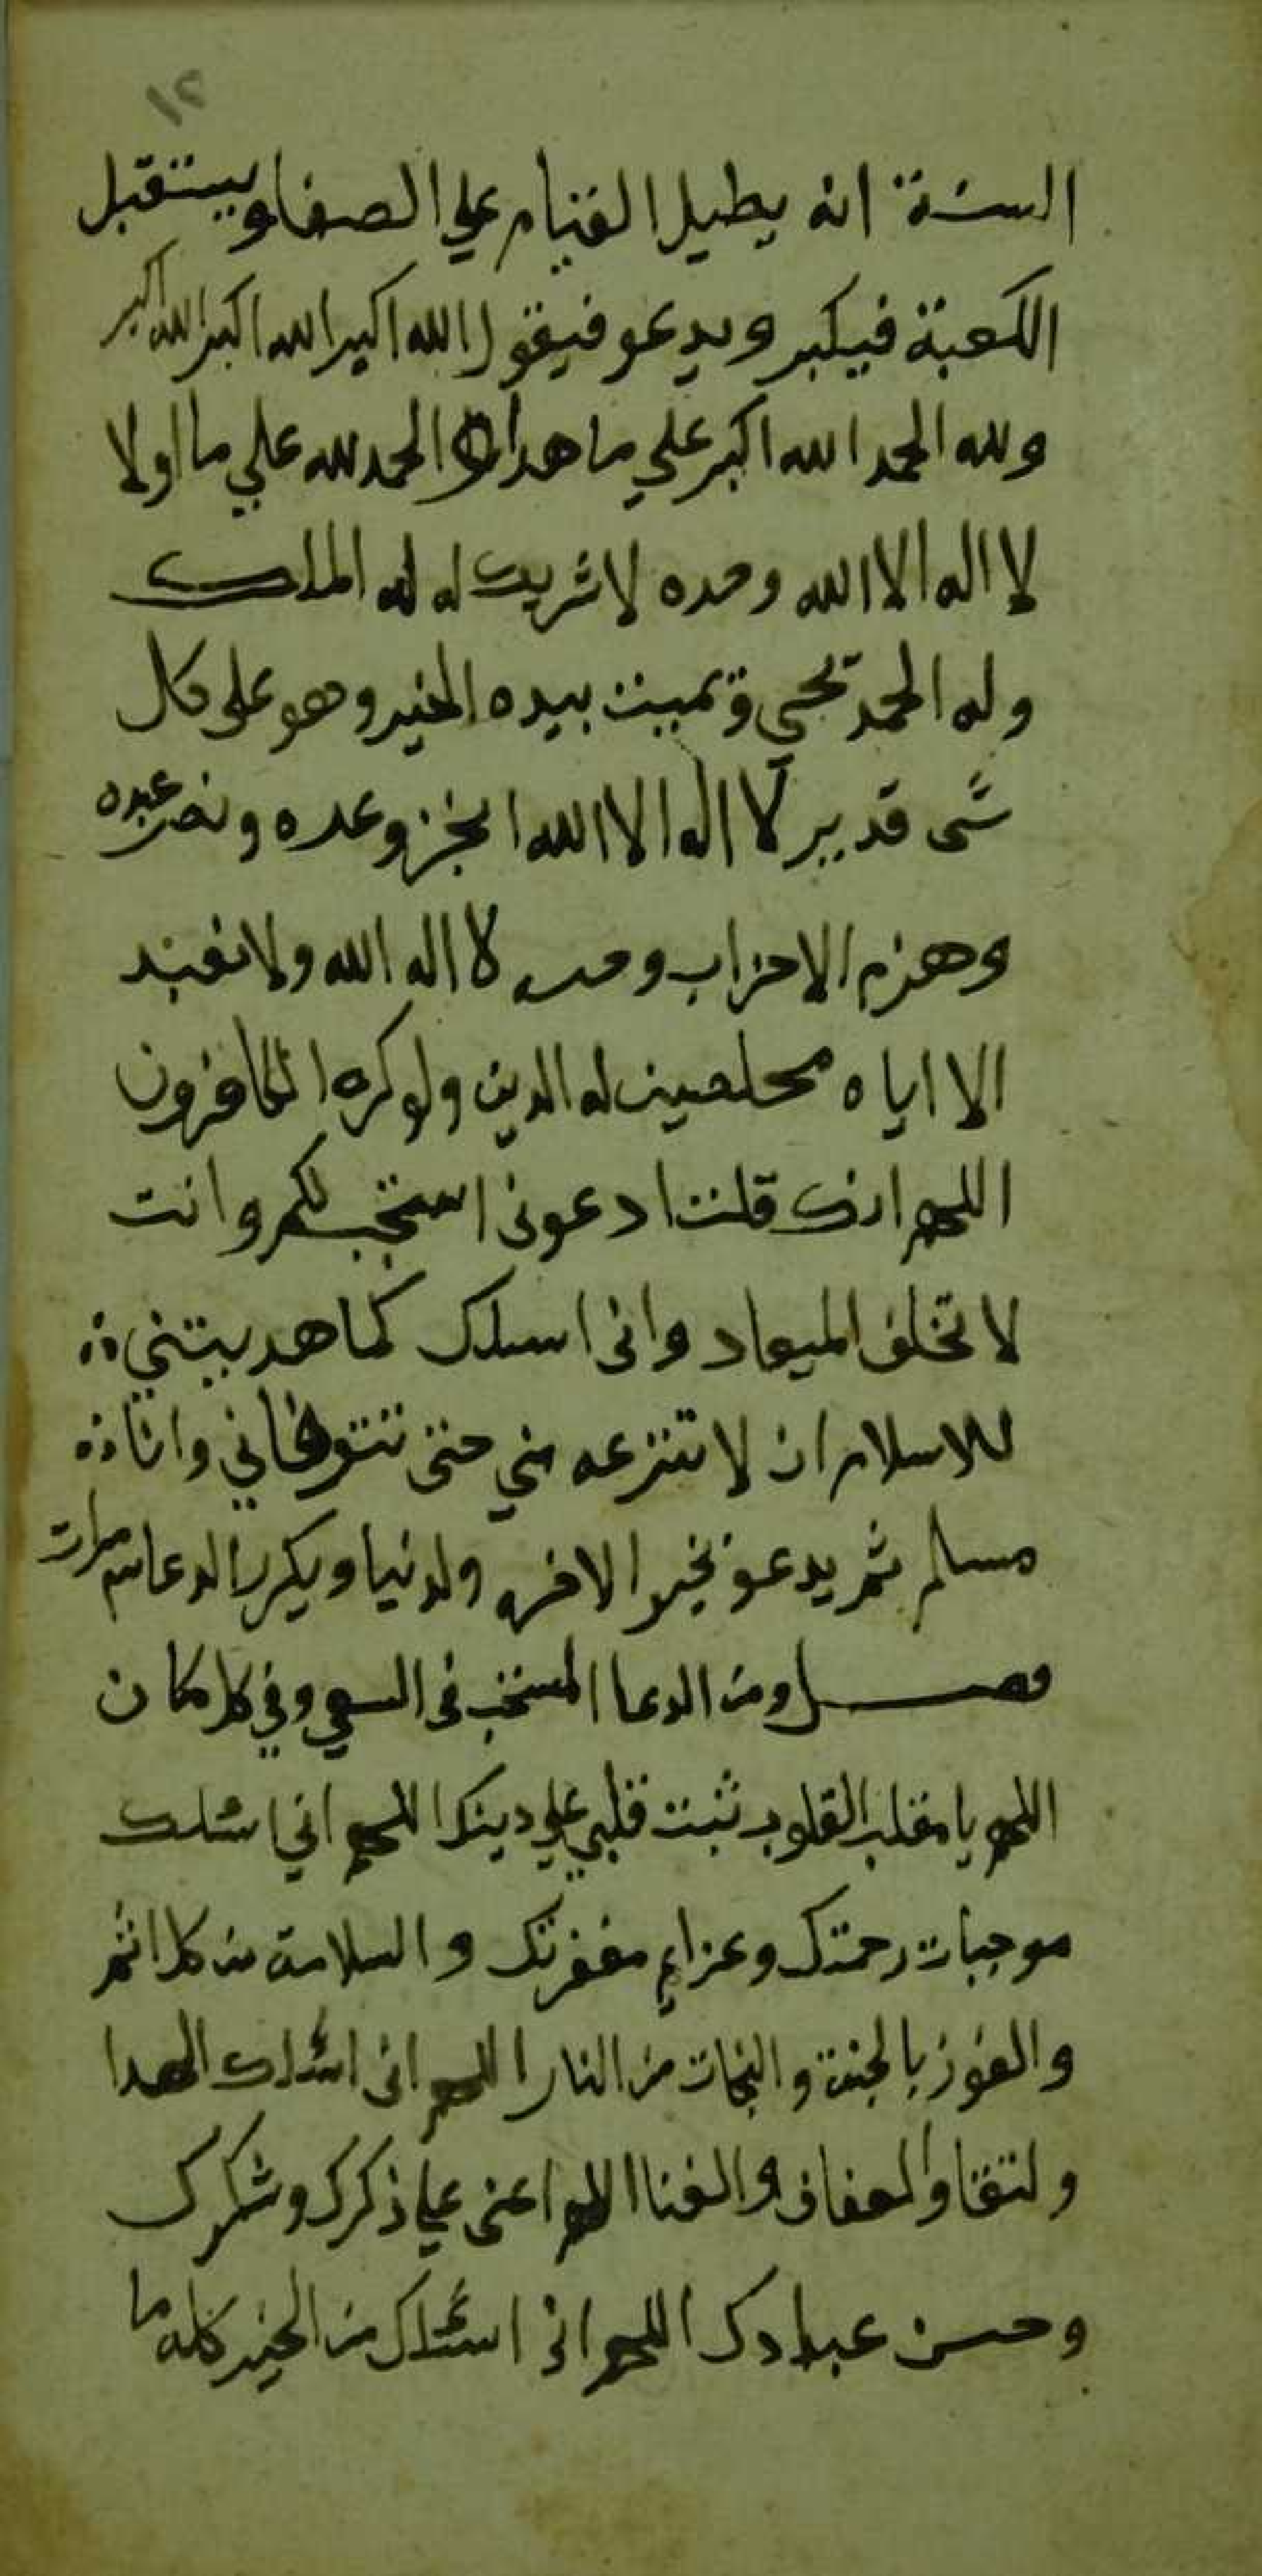 ١٢
السنة انه يطيل القيام علي الصفا ويستقبل
الكعبة فيكبر ويدعو فيقول الله اكبر الله اكبر الله اكبر
ولله الحمد الله اكبر علي ما هدانا الحمد لله علي ما اولا
لا اله الا الله وحده لا شريك له له الملك
وله الحمد يحيي ويميت بيده الخير وهو على كل
شى قدير لا اله الا الله انجز وعده ونصر عبده
وهزم الاحزاب وحده لا اله الله ولا نعبد
الا اياه مخلصين له الدين ولو كره الكافرون
اللهم انك قلت ادعونى استجب لكم وانت
لا تخلف الميعاد وانى اسلك كما هديتني
للاسلام ان لا تنزعه مني حتى تتوفاني وانا
مسلم ثم يدعو بخير الاخره ولدنيا ويكرر الدعا مرات
فصل ومن الدعا المستحب فى السعي وفي كل مكان
اللهم يا مقلب القلوب ثبت قلبي علي دينك اللهم اني اسئلك
موجبات رحمتك وعزايم مغفرتك والسلامة من كل اثم
والفوز بالجنة والنجات من النار اللهم انى اسئلك الهدا
ولتقا والعفاف والغنا اللهم اعنى علي ذكرك وشكرك
وحسن عبادك اللهم انى اسئلك من الخير كله ما